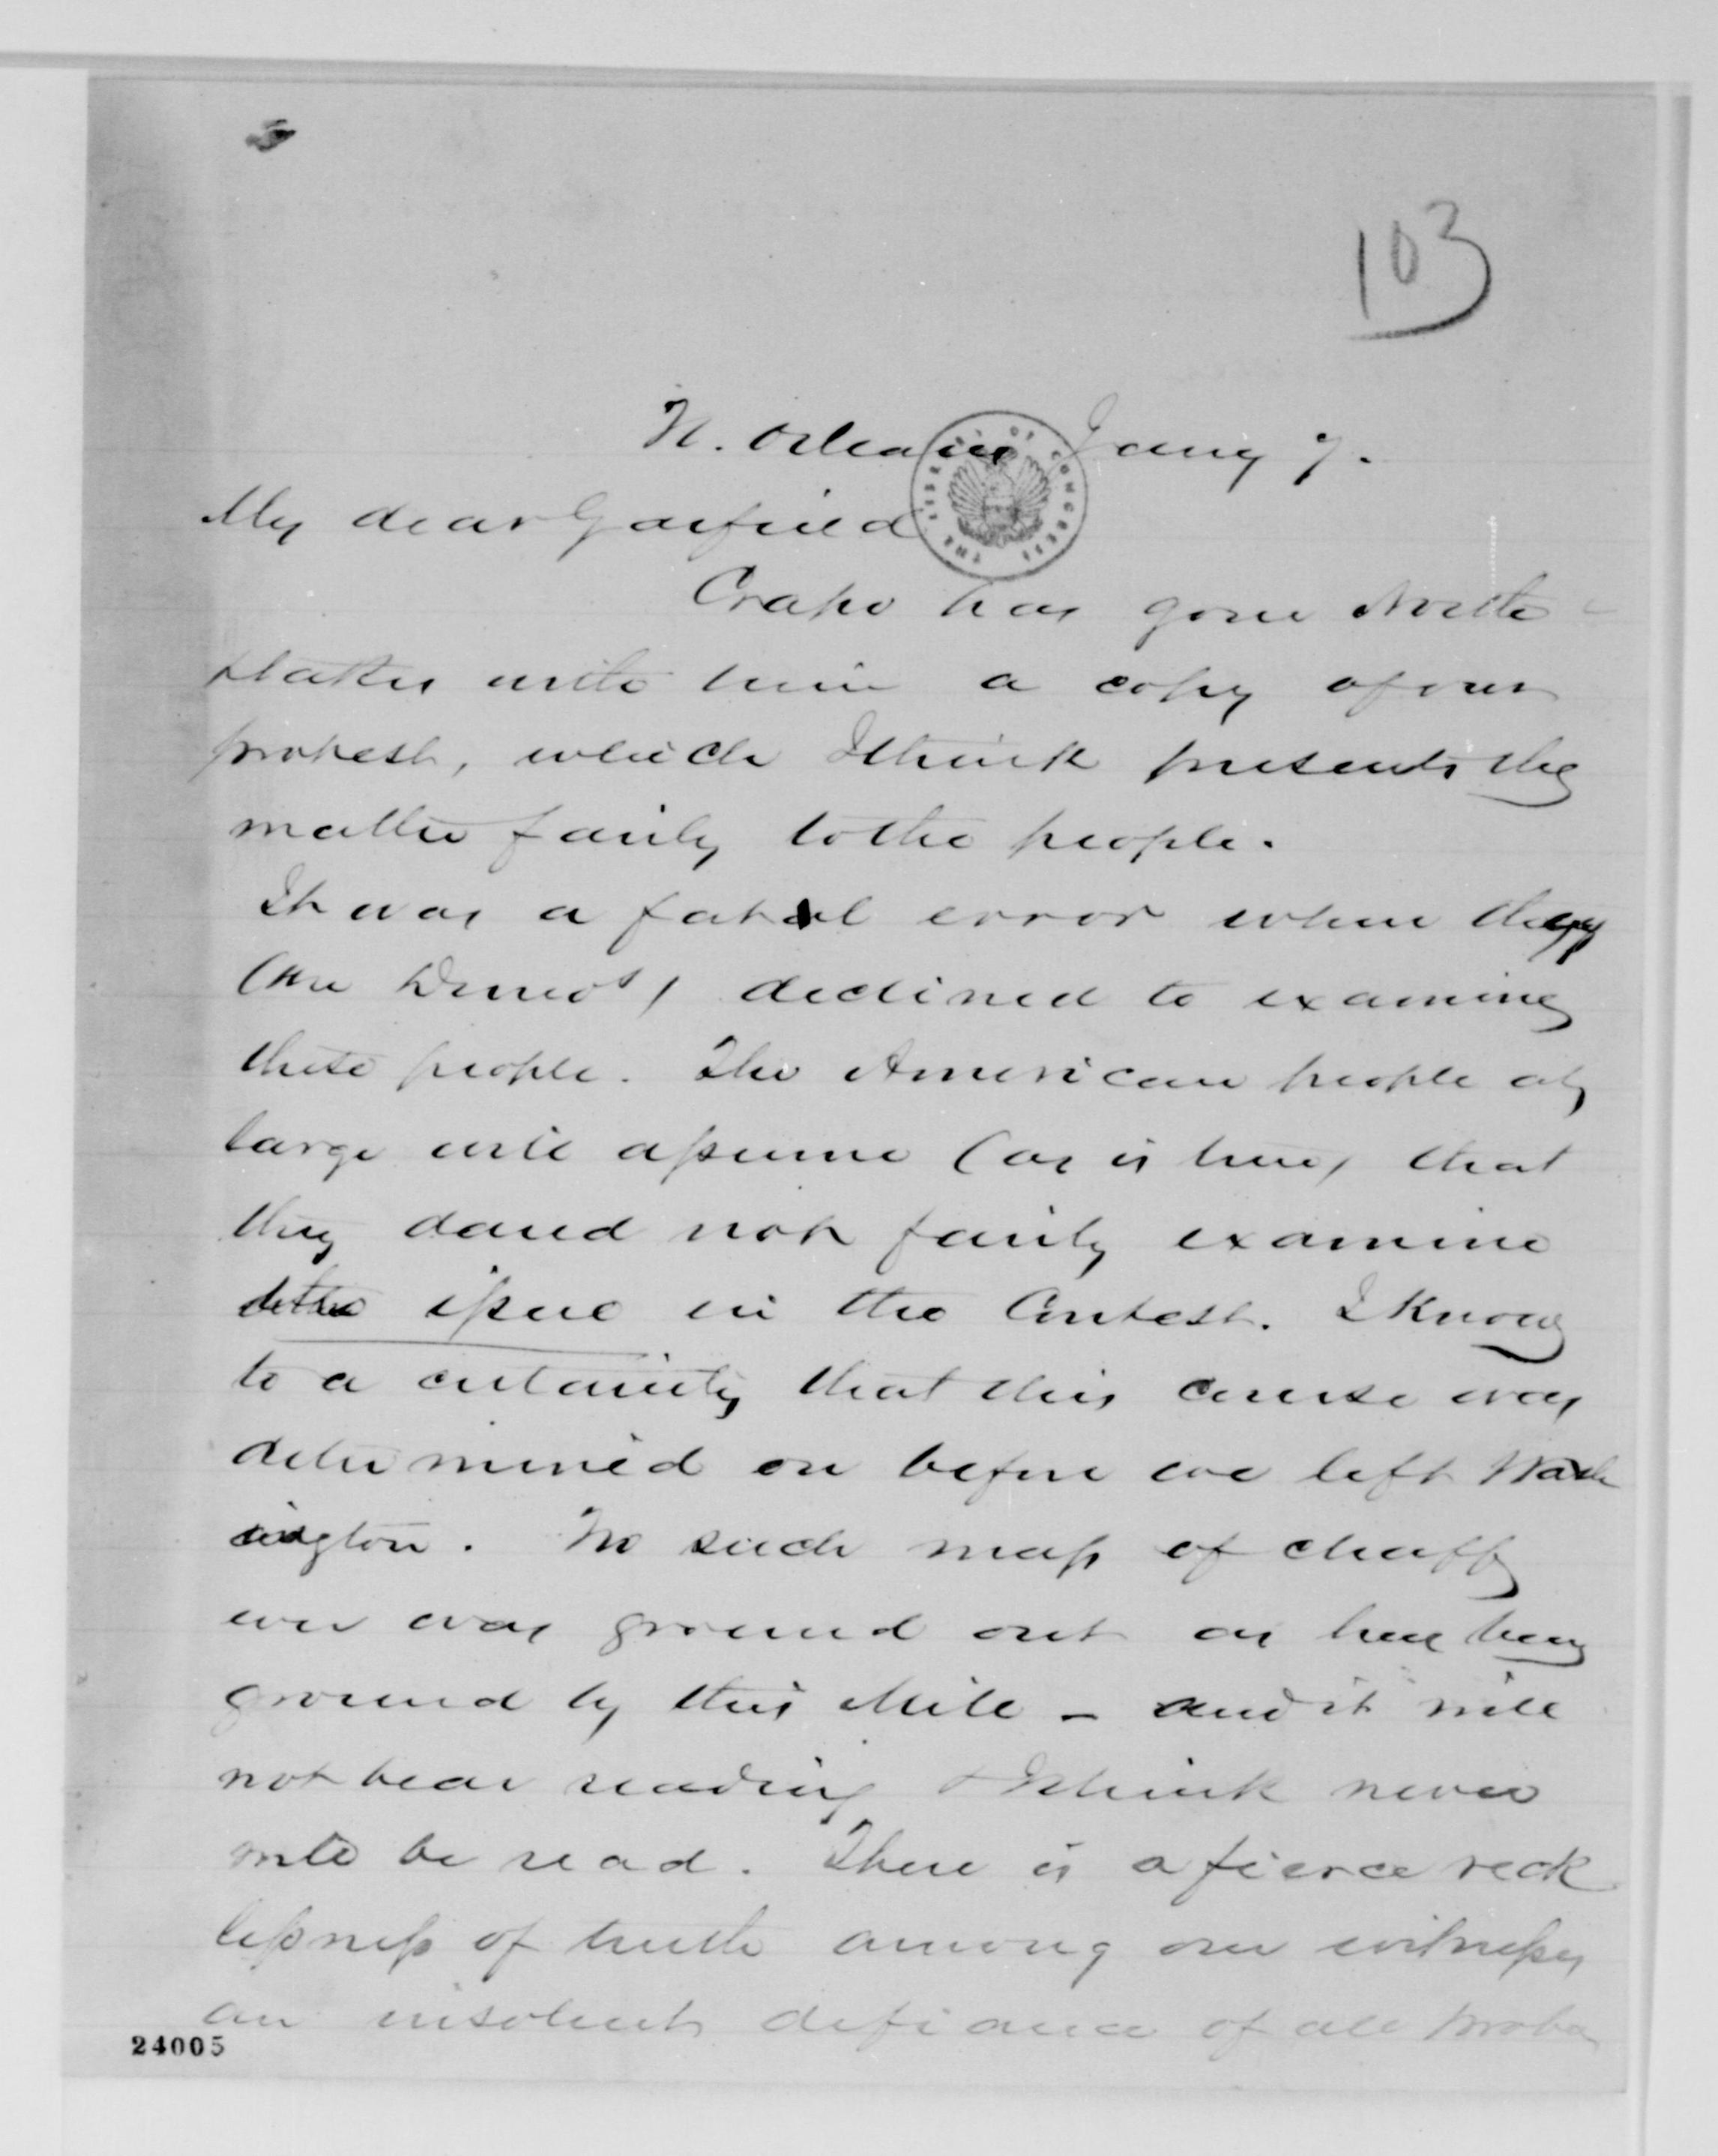 103
N. Orleans Jany 7.
THE LIBRARY OF CONGRESS
My dear Garfield
Crapo has gone North
& takes with him a copy of our
protest, which I think presents the
matter fairly to the people.
It was a fatal error when they
(the Demos) declined to examine
these people. The American people at
large will assume (as is true) that
they dared not fairly examine
the issue in the Contest. I know
to a certainty that this course was
determined on before we left Wash
ington. No such mass of chaff
ever was ground out as has been
ground by this Mill - and it will
not bear reading & I think never
will be read. There is a fierce reck
lessness of truth among our witnesses
an insolent defiance of all proba
24005